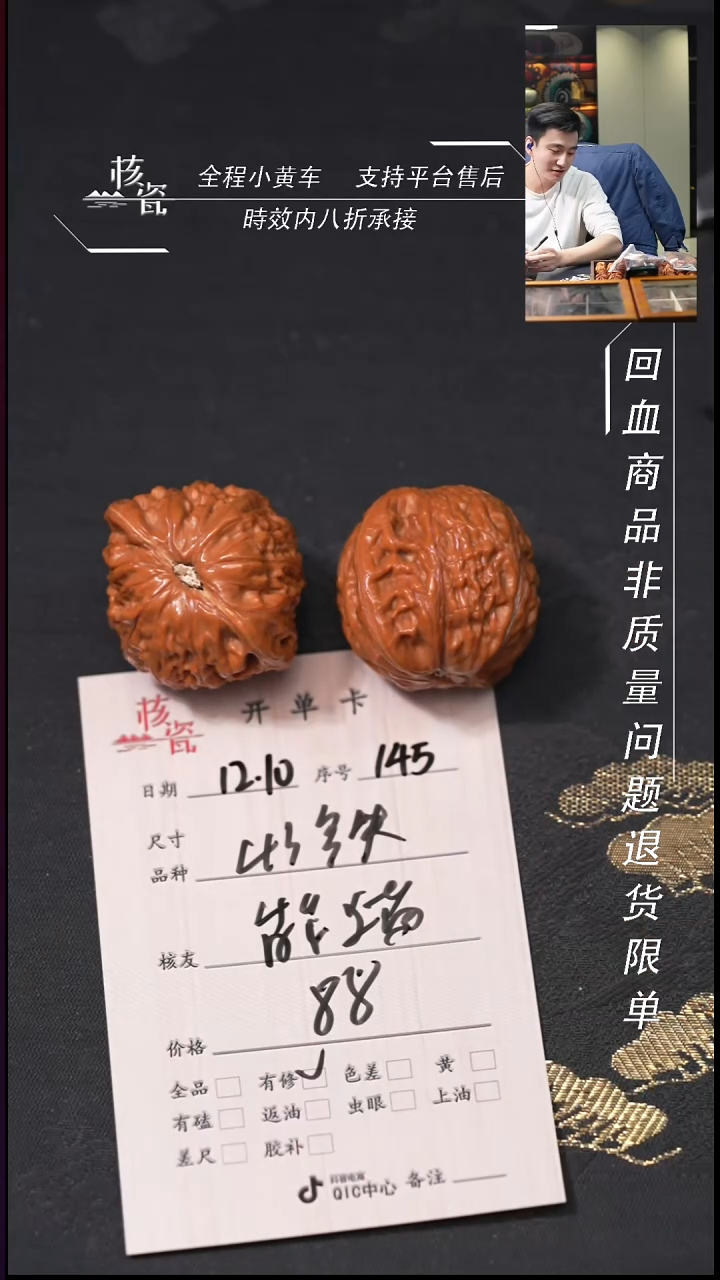 核瓷
全程小黄车 支持平台售后
時效内八折承接
回血商品非质量问题退货限单
核瓷
开单卡
日期 12.10 序号 145
尺寸
品种
核友
价格 88
全品 有修 色差 黄
有磕 返油 虫眼 上油
差尺 胶补
抖音电商
QIC中心 备注